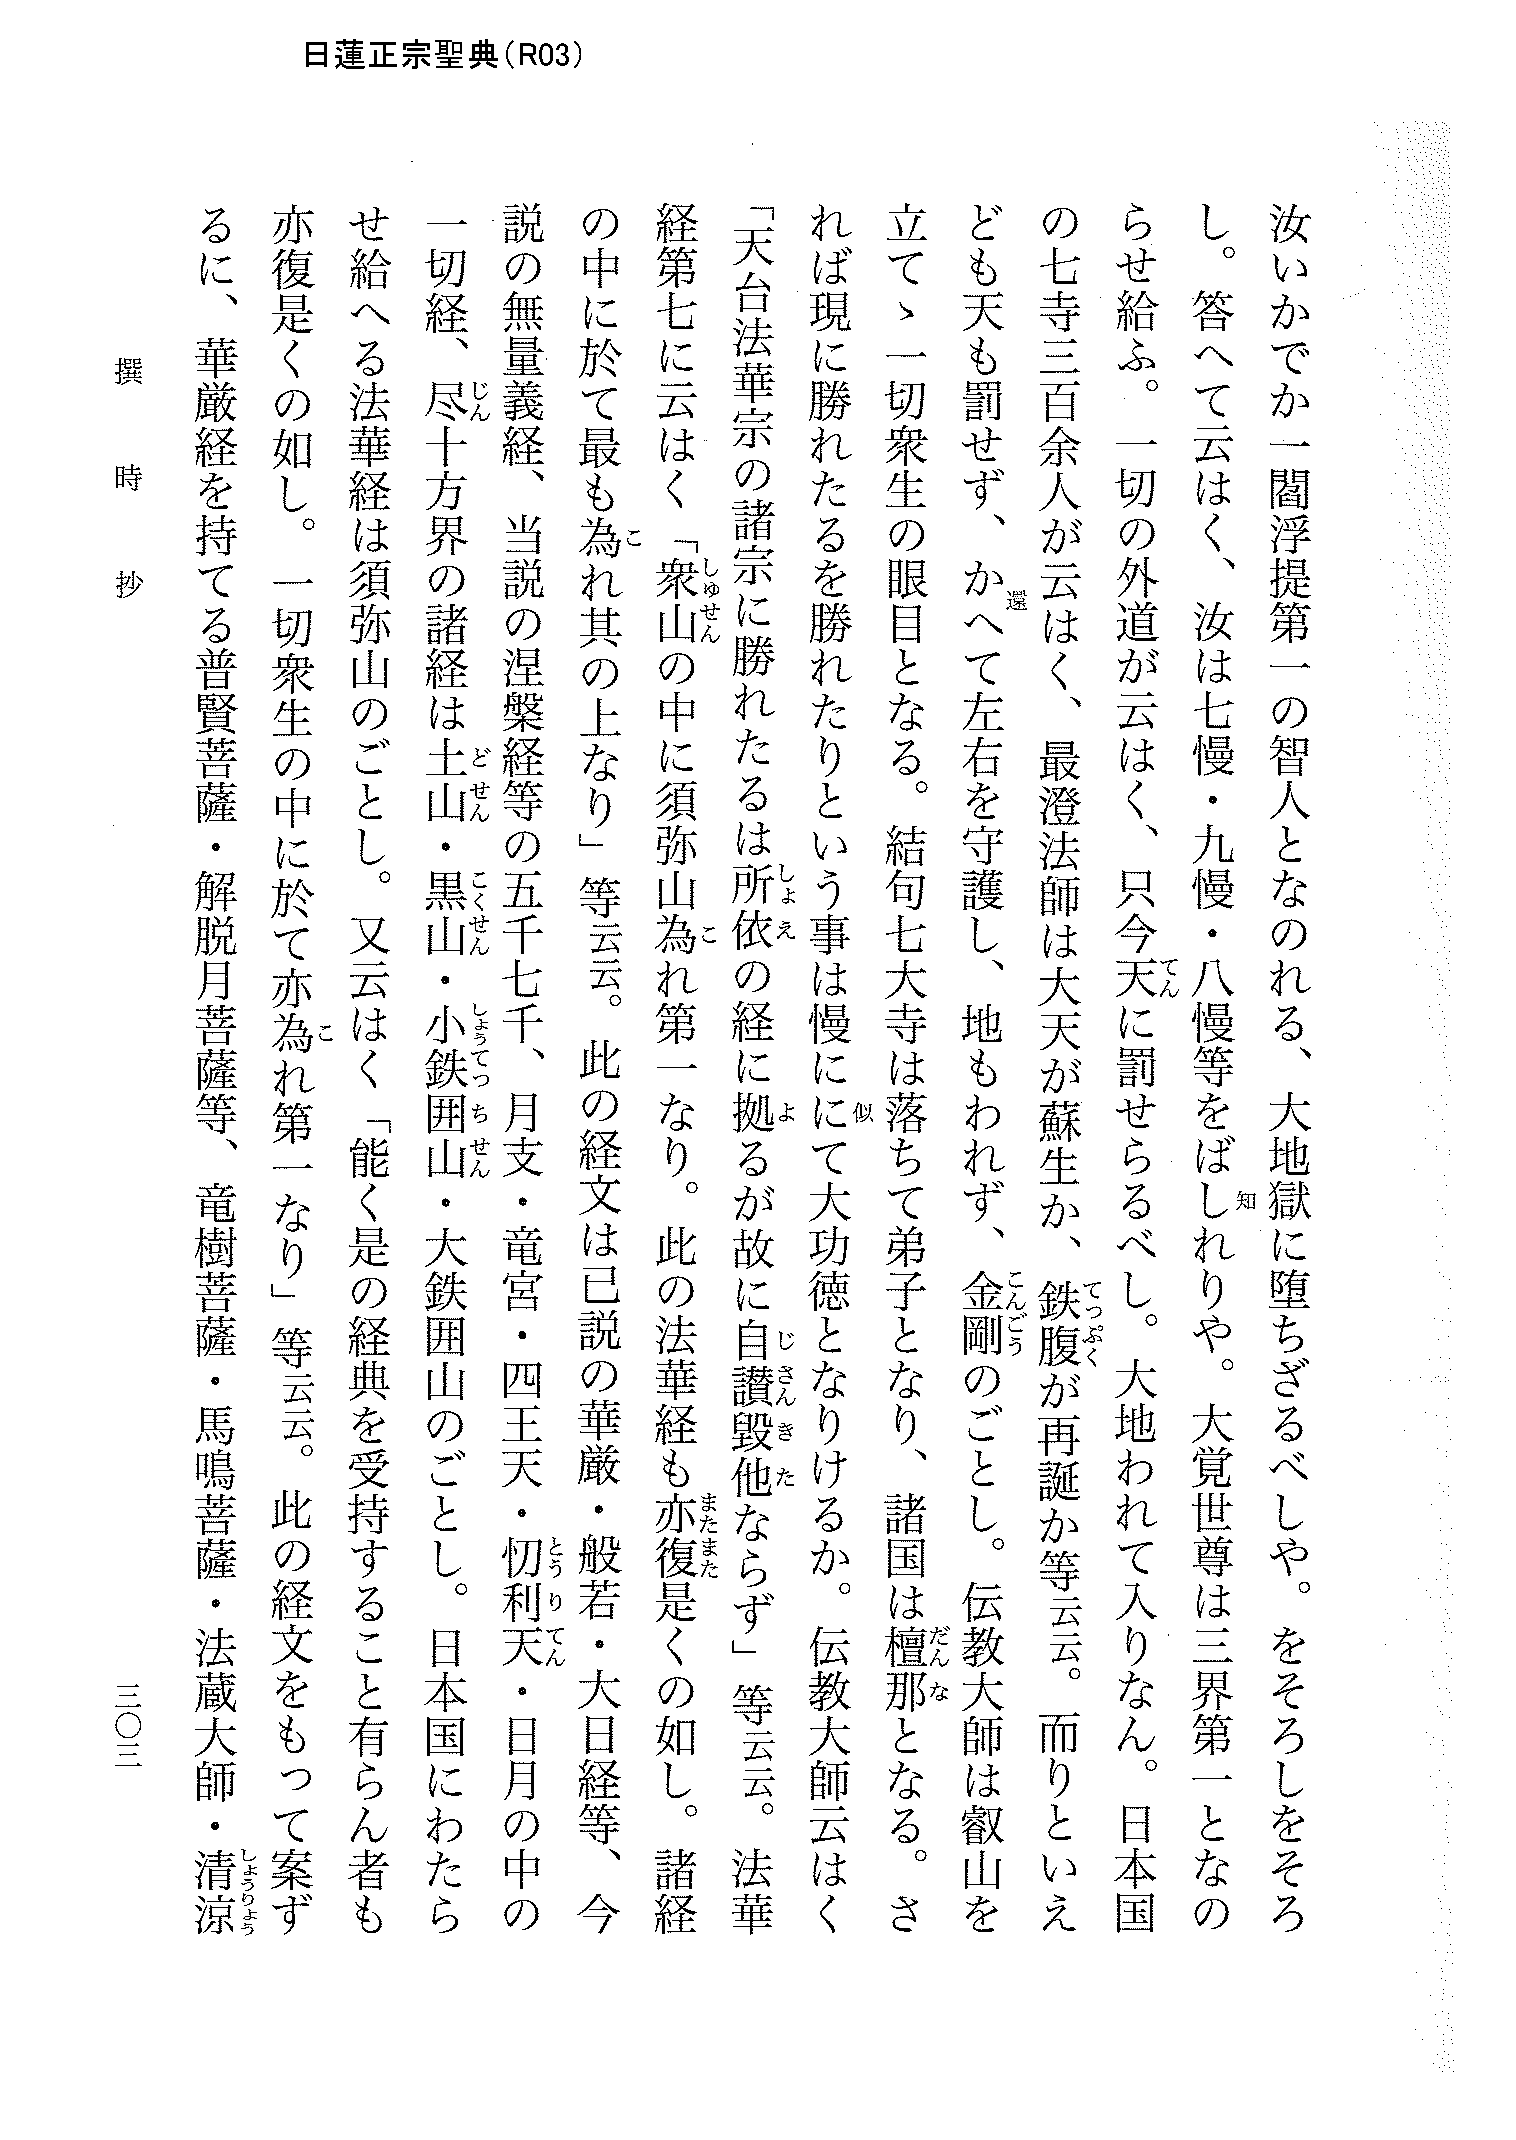 日蓮正宗聖典（R03）
汝いかでか一閻浮提第一の智人となのれる、大地獄に堕ちざるべしや。をそろしをそろ
し。答へて云はく、汝は七慢・九慢・八慢等をばしれりや。大覚世尊は三界第一となの
らせ給ふ。一切の外道が云はく、只今天に罰せらるべし。大地われて入りなん。日本国
の七寺三百余人が云はく、最澄法師は大天が蘇生か、鉄腹が再誕か等云云。而りといえ
ども天も罰せず、かへて左右を守護し、地もわれず、金剛のごとし。伝教大師は叡山を
立てゝ一切衆生の眼目となる。結句七大寺は落ちて弟子となり、諸国は檀那となる。さ
れば現に勝れたるを勝れたりという事は慢ににて大功徳となりけるか。伝教大師云はく
「天台法華宗の諸宗に勝れたるは所依の経に拠るが故に自讃毀他ならず」等云云。法華
経第七に云はく「衆山の中に須弥山為れ第一なり。此の法華経も亦復是くの如し。諸経
の中に於て最も為れ其の上なり」等云云。此の経文は已説の華厳・般若・大日経等、今
説の無量義経、当説の涅槃経等の五千七千、月支・竜宮・四王天・忉利天・日月の中の
一切経、尽十方界の諸経は土山・黒山・小鉄囲山・大鉄囲山のごとし。日本国にわたら
せ給へる法華経は須弥山のごとし。又云はく「能く是の経典を受持すること有らん者も
亦復是くの如し。一切衆生の中に於て亦為れ第一なり」等云云。此の経文をもって案ず
るに、華厳経を持てる普賢菩薩・解脱月菩薩等、竜樹菩薩・馬鳴菩薩・法蔵大師・清涼
撰時抄
三〇三